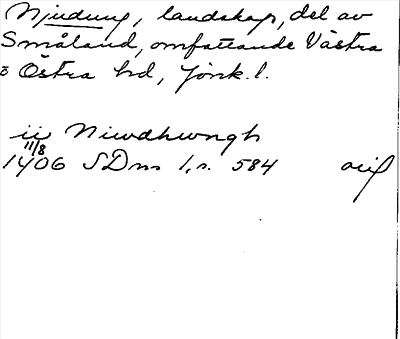 Njudung, landskap, del av
Småland, omfattande Västra
o Östra hd, Jönk. l.
ii Niwdhwngh
11/8
1406 SDns 1, s. 584